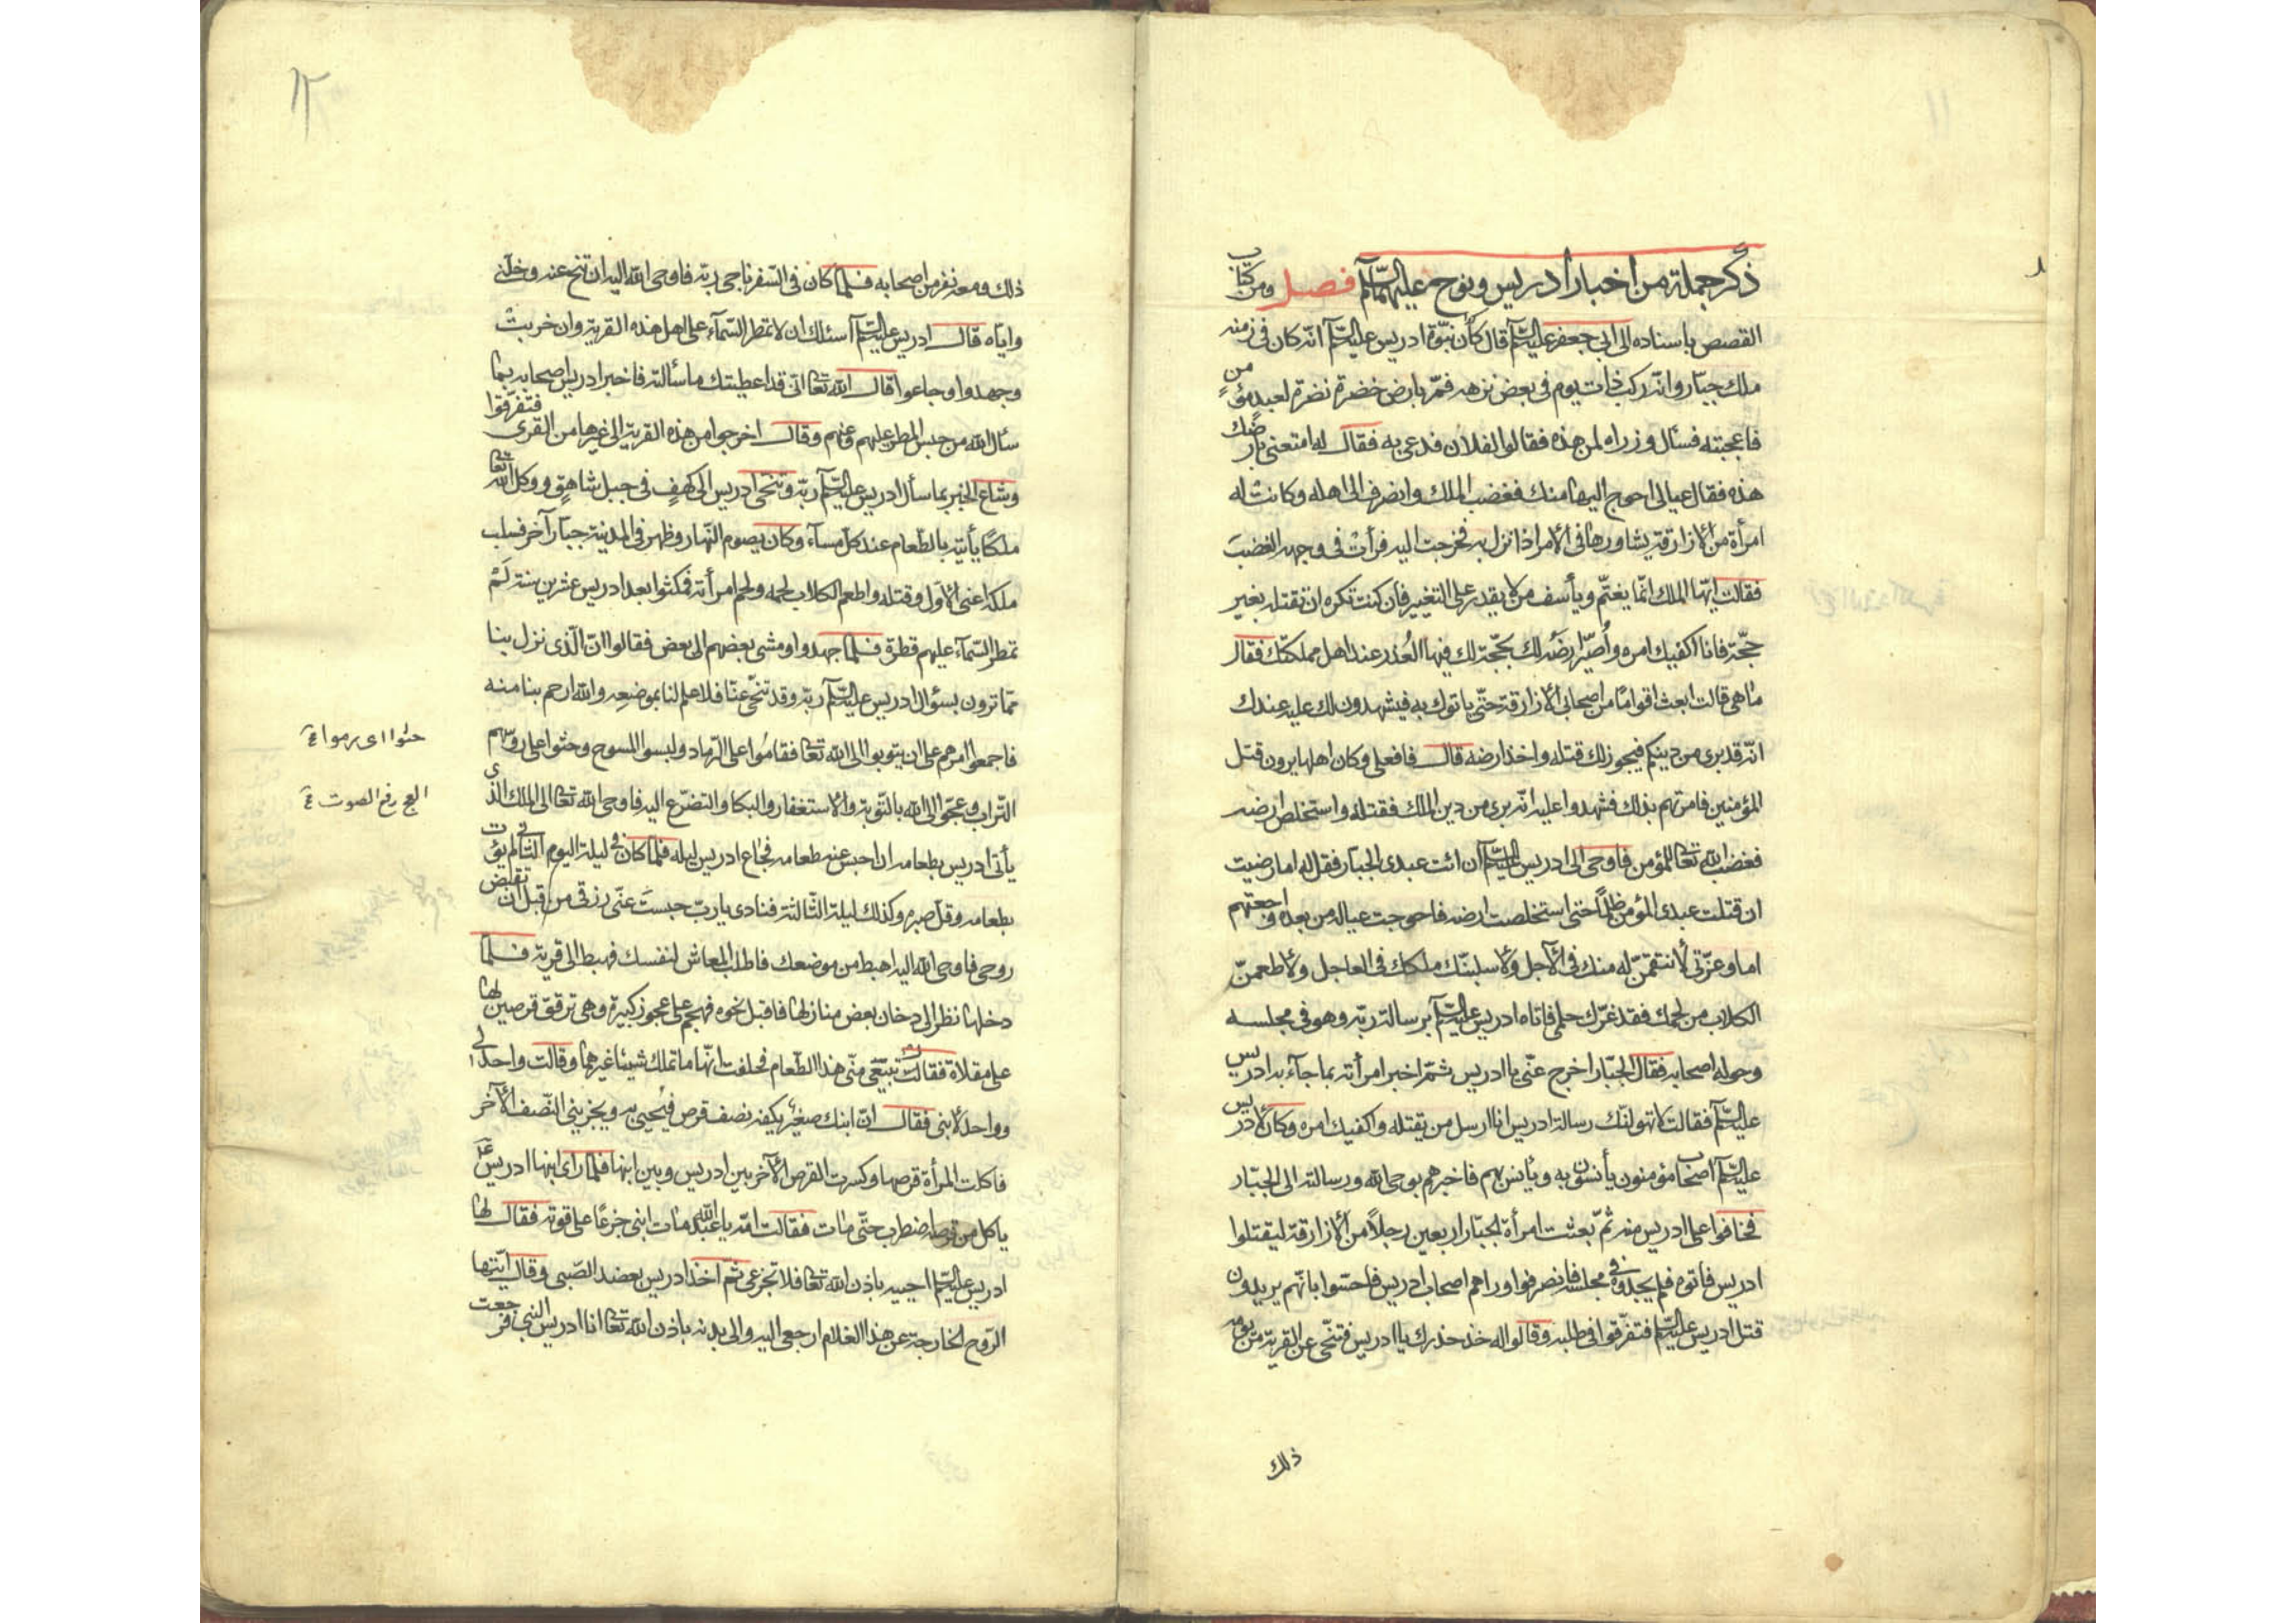 ١١
ذكر جملة من اخبار ادريس ونوح عليهما السّلم فصل ومن كتاب
القصص باسناده الى ابى جعفر عليه السّلم قال كان نبوّة ادريس عليه السّلم انّه كان فى زمنه
ملك جبّار وانّه ركب ذات يوم فى بعض نزهه فمرّ بارض خضرة نضرة لعبد مؤمن
فاعجبته فسأل وزراه لمن هذه فقالوا لفلان فدعى به فقال له امتعنى بارضك
هذه فقال عيالى احوج اليها منك فغضب الملك وانصرف الى اهله وكانت له
امرأة من الازارقة يشاورها فى الامر اذا نزل به فخرجت اليه فرأت فى وجهه الغضب
فقالت ايّها الملك انّما يغتمّ ويأسف من لا يقدر على التغيير فان كنت تكره ان تقتله بغير
حجّة فانا اكفيك امره وأصيّر ارضه لك بحجّة لك فيها العُذر عند اهل مملكتك فقال
ما هى قالت ابعث اقوامًا من اصحابى الازارقة حتّى ياتوك به فيشهدون لك عليه عندك
انّه قد برى من دينكم فيجوز لك قتله واخذ ارضه قال فافعلى وكان اهلها يرون قتل
المؤمنين فامرتهم بذلك فشهدوا عليه انّه برى من دين الملك فقتله واستخلص ارضه
فغضب الله تعالى للمؤمن فاوحى الى ادريس عليه السّلم ان ائت عبدى الجبّار فقل له اما رضيت
ان قتلت عبدى المؤمن ظلمًا حتى استخلصت ارضه فاحوجت عياله من بعده واجعتهم
اما وعزّتى لانتقمنّ له منك فى الآجل ولاسلبنّك ملكك فى العاجل ولاطعمنّ
الكلاب من لحمك فقد غرّك حلمى فاتاه ادريس عليه السّلم برسالة ربّه وهو فى مجلسه
وحوله اصحابه فقال الجبّار اخرج عنّى يا ادريس ثمّ اخبر امرأته بما جآء به ادريس
عليه السّلم فقالت لا تهولنّك رسالة ادريس انا ارسل من يقتله واكفيك امره وكان لادريس
عليه السّلم اصحاب مؤمنون يأنسون به ويأنس بهم فاخبرهم بوحى الله ورسالته الى الجبّار
فخافوا على ادريس منه ثمّ بعثت امرأة الجبّار اربعين رجلاً من الازارقة ليقتلوا
ادريس فاتوه فلم يجدوه فى مجلسه فانصرفوا وراهم اصحاب ادريس فاحسّوا بانّهم يريدون
قتل ادريس عليه السّلم فتفرّقوا فى طلبه وقالوا له خذ حذرك يا ادريس فتنحّى عن القرية من يومه
ذلك
١٢
ذلك ومعه نفر من اصحابه فلمّا كان فى السّفر ناجى ربّه فاوحى الله اليه ان تنح عنه وخلّنى
وايّاه قال ادريس عليه السّلم أسئلك ان لا تمطر السّمآء على اهل هذه القرية وان خربت
وجهدوا وجاعوا قال الله تعالى انّى قد اعطيتك ما سألته فاخبر ادريس اصحابه بما
سأل الله من حبس المطر عليهم وعنهم وقال اخرجوا من هذه القرية الى غيرها من القرى فتفرّقوا
وشاع الخبر بما سأل ادريس عليه السّلم ربّه وتنحّى ادريس الى كهفٍ فى جبل شاهقٍ ووكل الله تعالى
ملكًا يأتيه بالطّعام عند كلّ مسآء وكان يصوم النّهار وظهر فى المدينة جبّار آخر فسلب
ملكه اعنى الاوّل وقتله واطعم الكلاب لحمه ولحم امرأته فمكثوا بعد ادريس عشرين سنة لَمْ
تمطر السّمآء عليهم قطرة فلمّا جهدوا ومشى بعضهم الى بعض فقالوا انّ الّذى نزل بنا
ممّا ترون بسؤال ادريس عليه السّلم ربّه وقد تنحّى عنّا فلا علم لنا بموضعه والله ارحم بنا منه
فاجمعوا امرهم على ان يتوبوا الى الله تعالى فقاموا على الرّماد ولبسوا المسوح وحثوا على روسهم
التّراب وعجّوا الى الله بالتّوبة والاستغفار والبكا والتضرّع اليه فاوحى الله تعالى الى الملك الّذى
يأتى ادريس بطعامه ان احبس عنه طعامه فجاع ادريس ليله فلمّا كان فى ليلة اليوم الثانى لم يؤت
بطعامه وقلّ صبره وكذلك ليلة الثّالثة فنادى يا ربّ حبستَ عنّى رزقى من قبل ان تقبض
روحى فاوحى الله اليه اهبط من موضعك فاطلب المعاش لنفسك فهبط الى قرية فلمّا
دخلها نظر الى دخان بعض منازلها فاقبل نحوه فهجم على عجوز كبيرة وهى ترقق قرصين لها
على مقلاة فقالت تبيعى منّى هذا الطّعام فحلفت انّها ما تملك شيئا غيرهما وقالت واحد لى
وواحد لابنى فقال انّ ابنك صغير يكفه نصف قرص فيحيى به ويجزينى النّصف الآخر
فاكلت المرأة قرصها وكسرت القرص الآخر بين ادريس وبين ابنها فلمّا رأى ابنها ادريس عَلَ
ياكل من قرصه اضطرب حتّى مات فقالت امّه يا عبد الله مات ابنى جزعًا على قوته فقال لها
ادريس عليه السّلم احييه باذن الله تعالى فلا تجزعى ثم اخذ ادريس بعضد الصّبى وقال ايّتها
الرّوح الخارجة عن هذا الغلام ارجعى اليه والى بدنه باذن الله تعالى انا ادريس النبى فرجعت
حثوا اى رموا
العج رفع الصوت